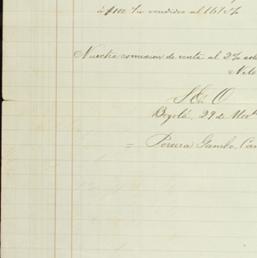 á $100 c/u vendidos al 161 2%
Nuestra comision de venta al 2% sob
Neto
S. E. ú O.
Bogotá, 29 de Nov.
Pereira Gamba, Cam